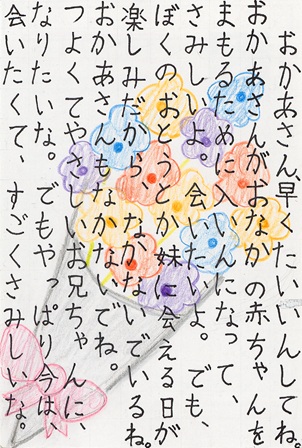 おかあさん、早くたいいんしてね。
おかあさんがおなかの赤ちゃんを
まもるために入いんになって、
さみしいよ。会いたいよ。でも、
ぼくのおとうとか妹に会える日が
楽しみだから、なかないでいるね。
おかあさんもなかないでね。
つよくてやさしいお兄ちゃんに、
なりたいな。でもやっぱり今は、
会いたくて、すごくさみしいな。